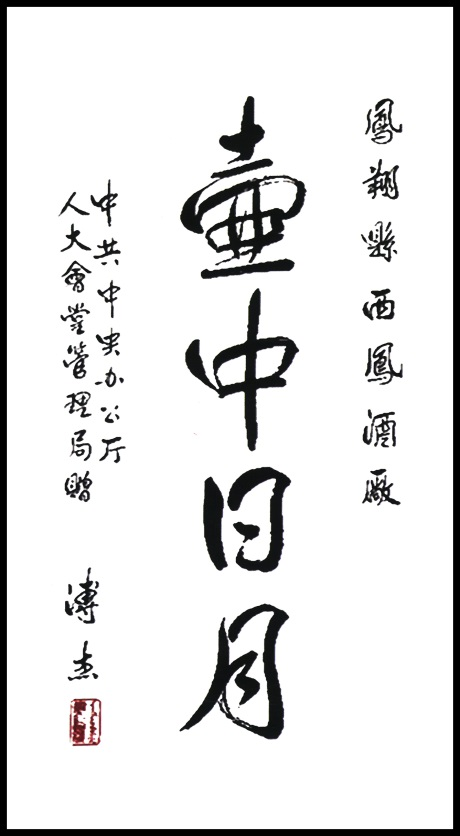 鳳翔縣西鳳酒廠
壺中日月
中共中央办公厅
人大會堂管理局贈
溥杰